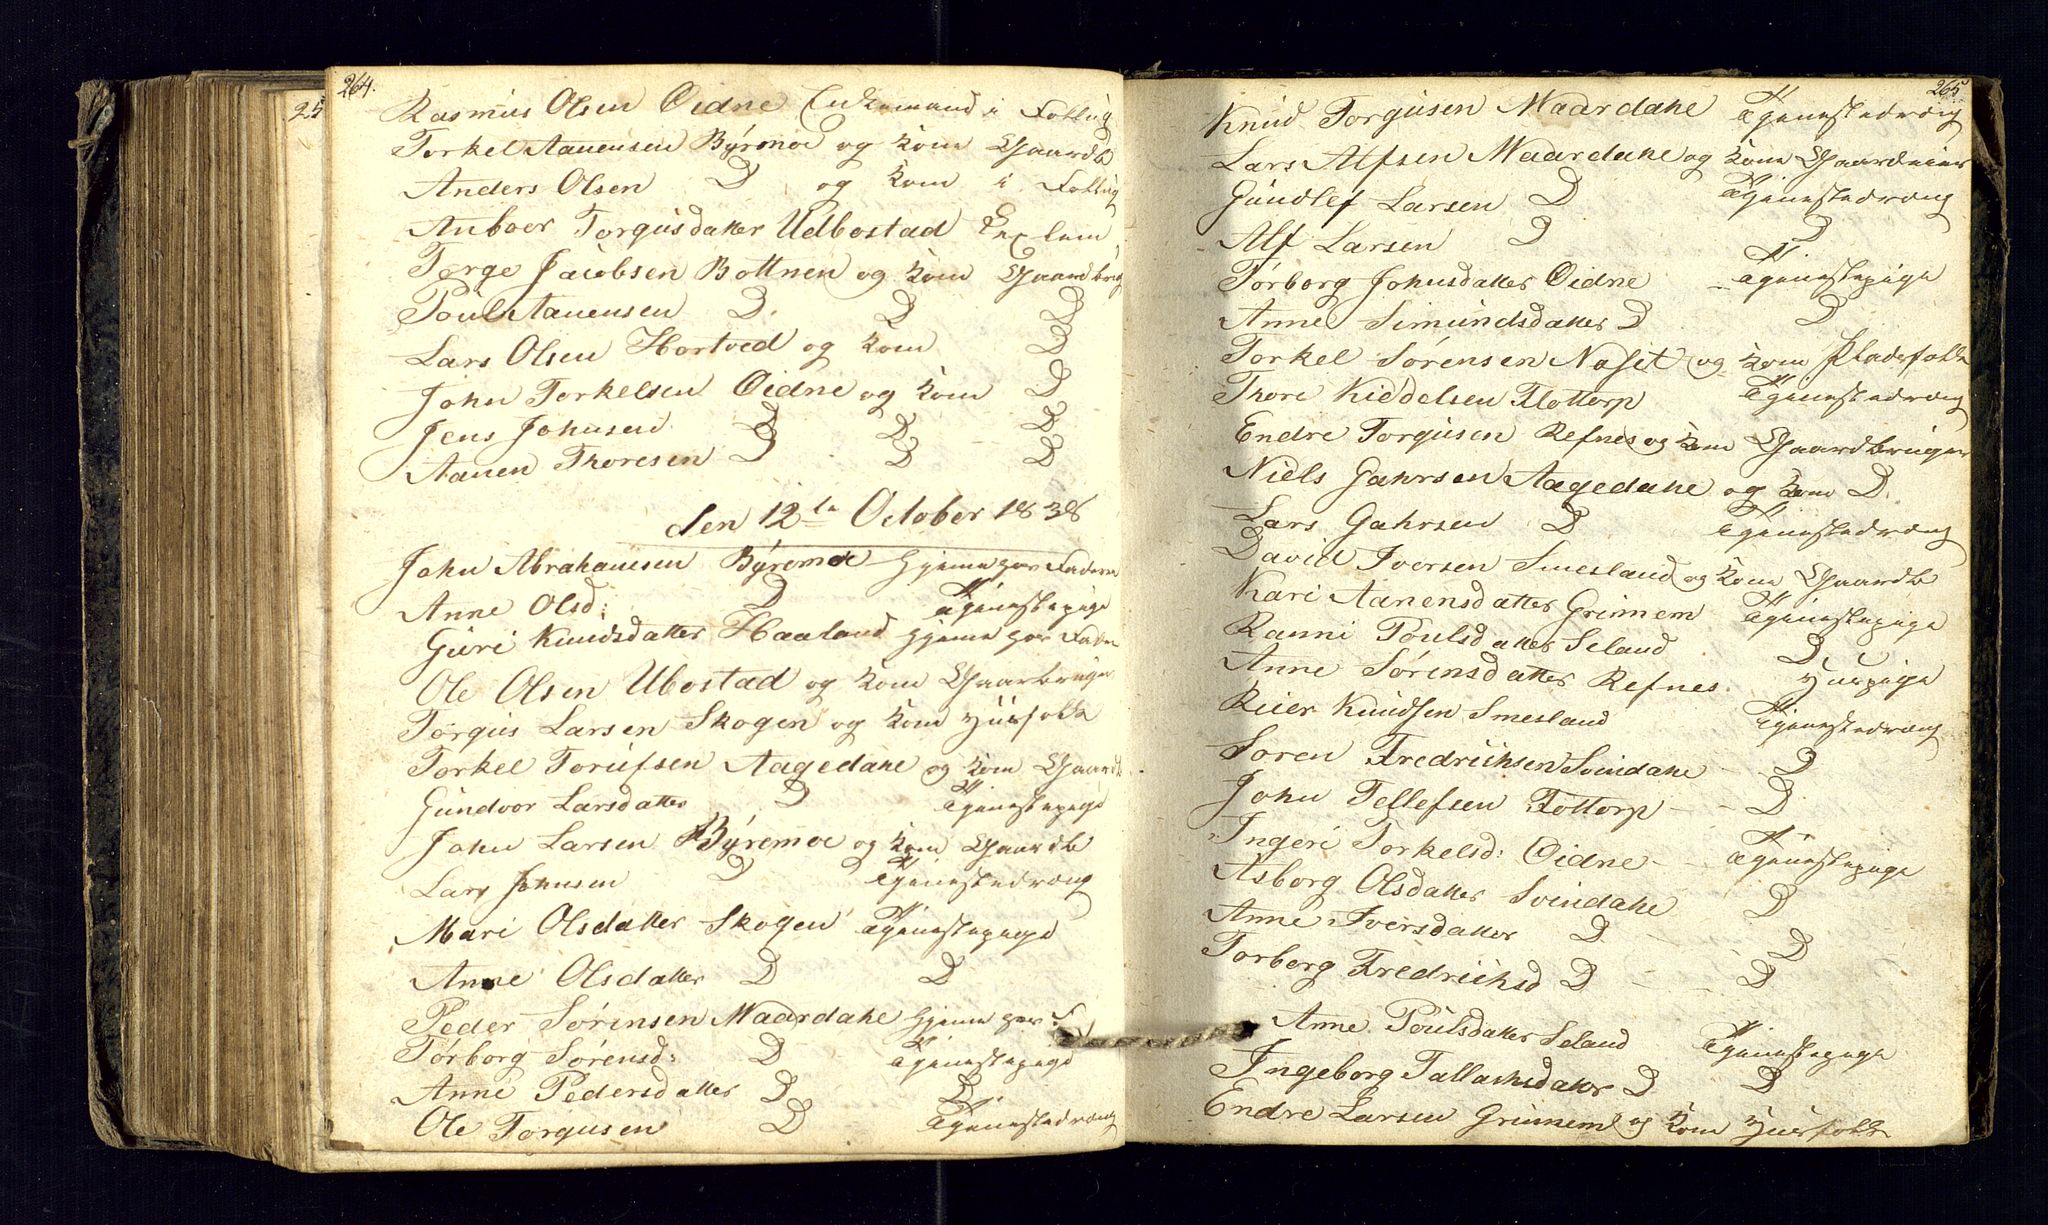 264.
25
Rasmus Olsen Öidne Enkemand i Fattig
Torkel Aanensen Býrmoe og Kone Gaardb
Anders Olsen D og Kone i Fattig
Anboer Torgusdatter Udbostad
Terge Jacobsen Bottnen og Kone Gaardbrug
Poul Aanensen D. D D
Lars Olsen Hortved og Kone D
John Terkelsen Öidne og Kone D
Jens Johnsen D D D
Aanen Thoresen D D D
den 12te October 1838
John Abrahamsen Býremoe hjeme hos Faderen
Anne Olsd: D Tjenestepige
Guri Knudsdatter Haaland hjeme hos Fader
Ole Olsen Ubostad og Kone Gaarbruger
Torgus Larsen Skogen og Kone Huusfolk
Torkel Torufsen Aagedahe og Kone Gaardb
Gundvor Larsdatter D Tjenestepige
John Larsen Býremoe og Kone Gaardb
Lars Johnsen D Tjenestedreng
Mari Olsdatter Skogen Tjenestepige
Anne Olsdatter D D
Peder Sörensen Maardahe hjeme hos F
Törborg Sörensd: D Tjenestepige
Anne Pedersdatter D D.
Ole Torgusen D Tjenestedreng
265
Knud Torgusen Maardahe Tjenestedreng
Lars Alfsen Maardahe og Kone Gaardeier
Gundlef Larsen D Tjenestedreng
Alf Larsen D D
Törborg Johnsdatter Öidne Tjenestepige
Anne Simundsdatter D D
Torkel Sörensen Noset og Kone Pladsfolk
Thore Kiddelsen Flottorp Tjenestedreng
Endre Torgusen Refnes og Kone Gaardbruger
Niels Gahrsen Aagedahe og Kone D.
Lars Gahrsen D Tjenestedreng
David Iversen Smesland og Kone Gaardb
Kari Aanensdatter Grimem Tjenestepige
Ranni Poulsdatter Seland D.
Anne Sörensdatter Refnes. Huuspige
Reier Knudsen Smesland Tjenestedreng
Soren Fredrichsen Svindahe D
John Tellefsen Tottorp D
Ingeri Torkelsd: Öidne Tjenestepige
Asborg Olsdatter Svindahe D
Anne Iversdatter D D
Torborg Fredrichsd D D
Anne Poulsdatter Seland Tjenestepige
Ingeborg Tallachsdatter D D
Endre Larsen Grimem og Kone Huusfolk